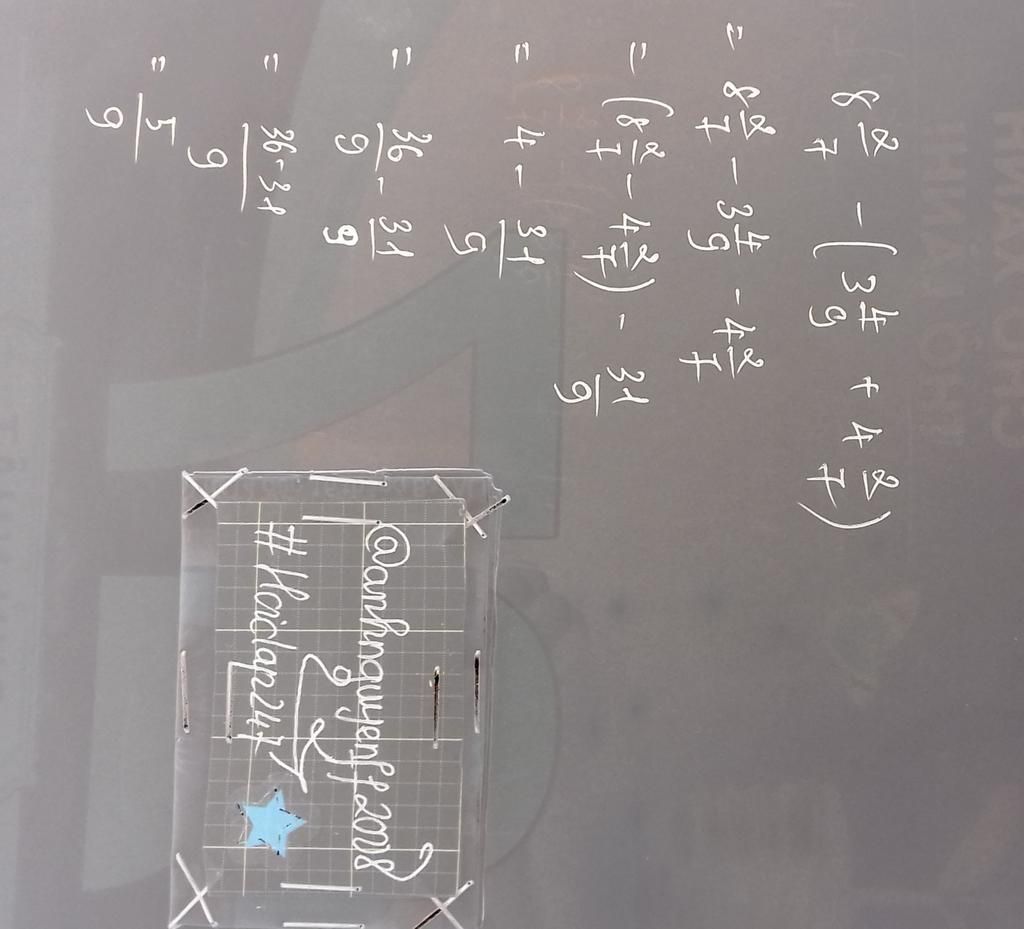 8 2/7 - ( 3 4/9 + 4 2/7 )
= 8 2/7 - 3 4/9 - 4 2/7
= (8 2/7 - 4 2/7) - 31/9
= 4 - 31/9
= 36/9 - 31/9
= 36-31/9
= 5/9
@anhnguyenff2008
#Hoidap247